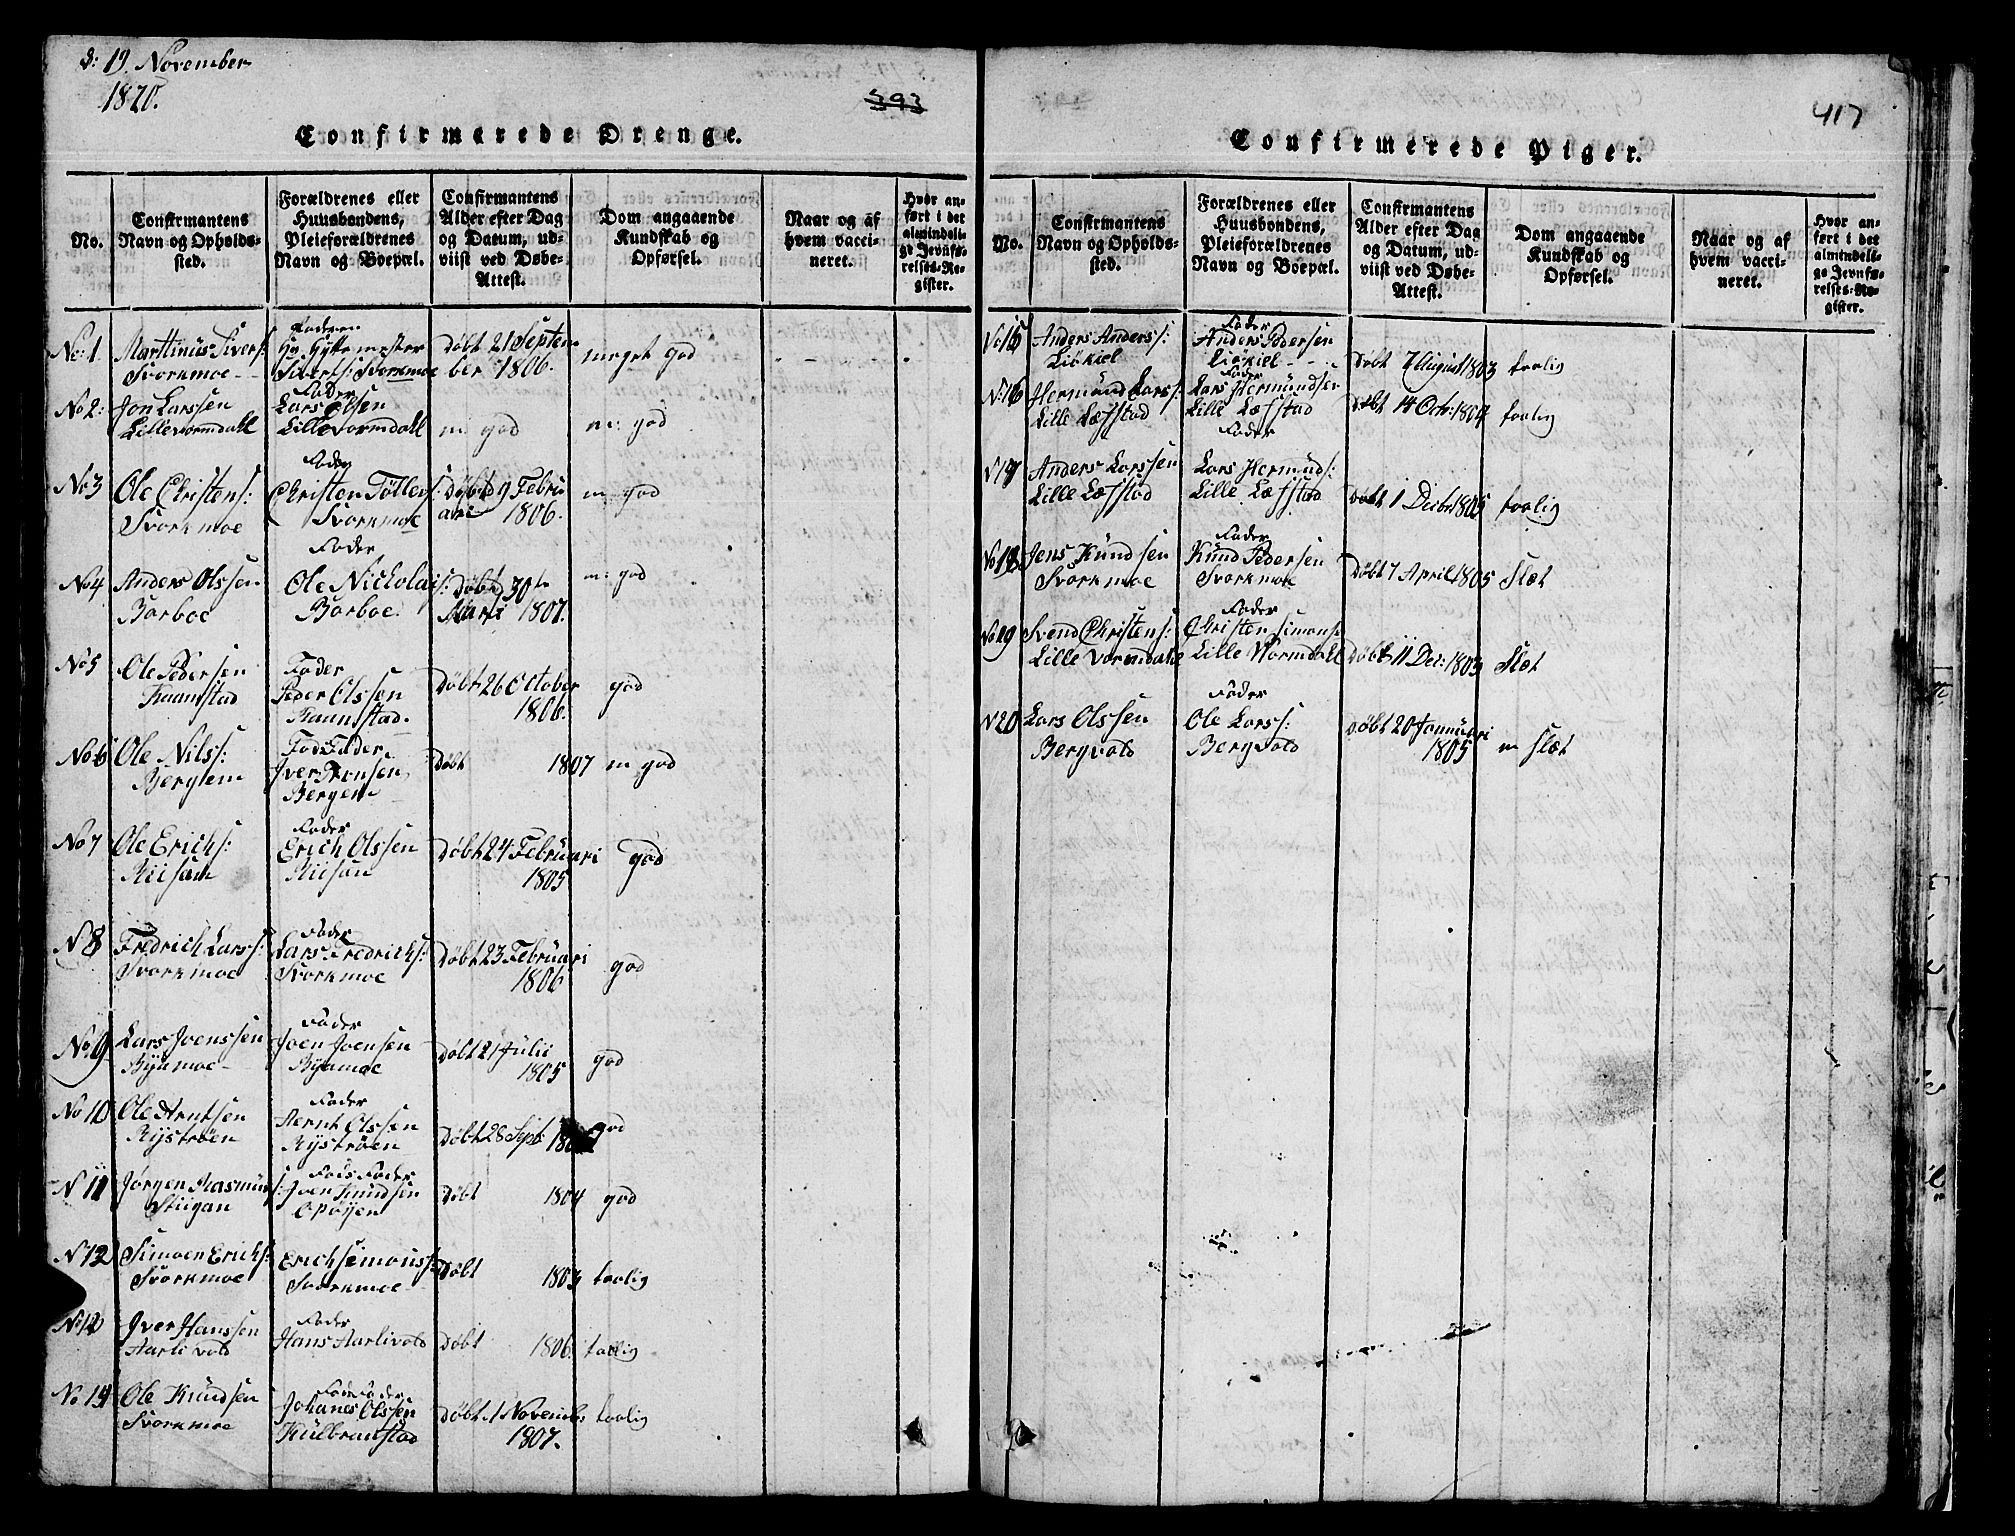 d: 19. November
1820.
393
Confirmerede Drenge.
No.
Confirmantens Navn og Opholds-sted.
Forældrenes eller Huusbondens, Pleieforældrenes Navn og Boepæl.
Confirmantens Alder efter Dag og Datum, ud-viist ved Døbe-Attest.
Dom angaaende Kundskab og Opførsel.
Naar og af hvem vacci-neret.
Hvor an-ført i det almindeli-ge Jevnfø-relses-Re-gister.
No: 1. Marttinus Siverts: Svorkmoe
Faderen Hr. Hyttemester Siverts: Svorkmoe
Døbt 21 September 1806.
meget god
No 2: Jon Larssen Lillevormdahl
Fader Lars Olsen Lille Vormdahl
m: god
m: god
No 3 Ole Christens: Svorkmoe
Fader Christen Töllefs: Svorkmoe
Døbt d 9 Februari 1806.
m: god
No 4 Anders Olssen Borboe
Fader Ole Nickolais: Borboe.
Døbt 30te Marti 1807.
m: god
No 5 Ole Pedersen Raamstad
Fader Peder Olssen Raamstad.
Døbt 26 October 1806.
god
No 6 Ole Nils: Berglem
Fader Jver Bergem
Døbt 1807
m god
No 7 Ole Erichs: Riisan
Fader Erich Olssen Riisan
Døbt 24 Februari 1805
god
N 8 Fredrich Larss: Svorkmoe
Fader Lars Fredrichs: Svorkmoe
Døbt 23 Februari 1806
god
No: 9 Lars Joenssen Byemoe
Fader Joen Joensen Byemoe
Døbt 21 Julii 1805
god
No 10 Ole Arntsen Rystrøen
Fader Aernt Olssen Rystrøen
Døbt 28 Sept:
god
N 11 Jørgen Rasmüs: Stiigan
Fads Fader Joen Knudsen Opøyen
Døbt 1804
god
N 12 Simoen Erichs: Svorkmoe
Erich Simons: Svorkmoe
Døbt 1803
taalig
No 12 Jver Hanssen Aarli vold
Fader Hans Aarlivold
Døbt 1806.
taalig
No 14 Ole Knüdsen Svorkmoe
Fads Fader Johanes Olssen Külbranstad
Døbt 1 Novembr 1807.
taalig
417
Confirmerede Piger.
No.
Confirmantens Navn og Opholds-sted.
Forældrenes eller Huusbondens, Pleieforældrenes Navn og Boepæl.
Confirmantens Alder efter Dag og Datum, ud-viist ved Døbe-Attest.
Dom angaaende Kundskab og Opførsel.
Naar og af hvem vacci-neret.
Hvor an-ført i det almindeli-ge Jevnfø-relses-Re-gister.
No 15 Anders Anders: Liskiel
Fader Anders Pedersen Liskiel
Døbt 7 August 1803
taalig
N: 16 Hermünd Larss: Lille Læfstad
Fader Lars Hermündsen Lille Læfstad
Døbt 14 Octr: 1804
taalig
N 17 Anders Larssen Lille Læfstad
Fader Lars Hermünds: Lille Læfstad
Døbt 1 Decbr 1805
taalig
No 18 Jens Knüdsen Svorkmoe
Fader Knüd Pedersen Svorkmoe
Døbt 7 April 1805
Slæt
No 19 Svend Christens: Lille Vormdahl
Fader Christen Simons: Lille Wormdahl
Døbt 11 Dec: 1803
Slæt
N 20 Lars Olssen Bergvold
Fader Ole Larss: Bergvold
Døbt 20 Januari 1805
m slæt